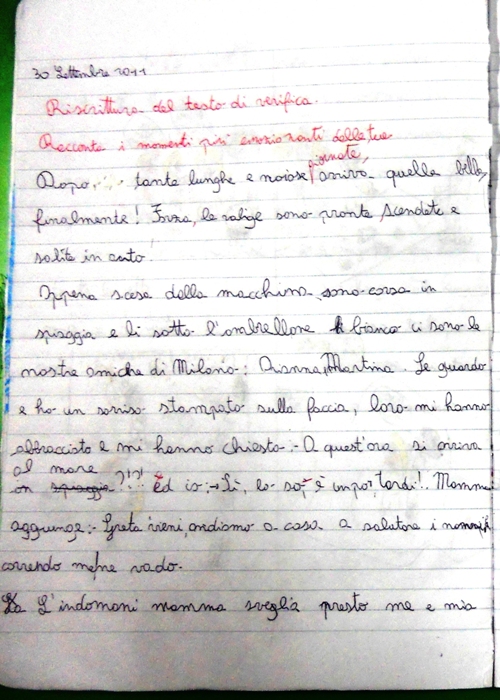 30 Settembre 2011
Riscrittura del testo di verifica.
Racconta i momenti più emozionanti delle tue
giornate,
Dopo tante lunghe e noiose arriva quella bella,
finalmente! Forza, le valige sono pronte, scendete e
salite in auto.
Appena scesa dalla macchina sono corsa in
spiaggia e lì sotto l'ombrellone bianco ci sono le
nostre amiche di Milano: Arianna, Martina. Le guardo
e ho un sorriso stampato sulla faccia, loro mi hanno
abbracciato e mi hanno chiesto:- A quest'ora si arriva
al mare
in spiaggia?!?! Ed io:-Sì, lo so, è tardi!. Mamma
aggiunge:- Greta vieni, andiamo a casa a salutare i nonni,
correndo me ne vado.
L'indomani mamma sveglia presto me e mia